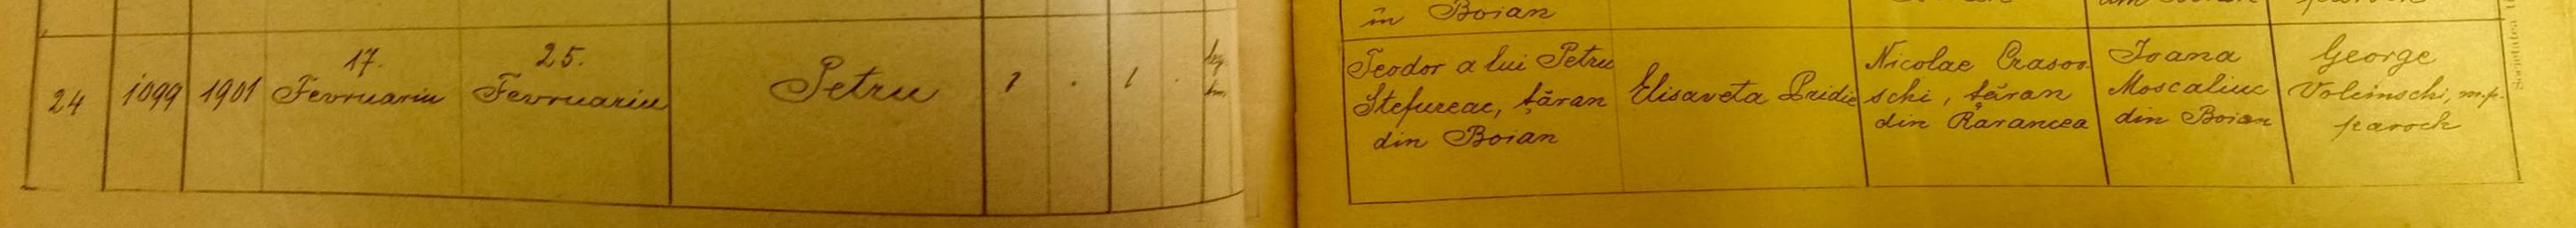 în Boian
24 1099 1901 17. Fevruariu 25. Fevruariu Petru 1 . 1 .
Teodor a lui Petru
Ștefureac, țăran
din Boian
Elisaveta Pridie
Nicolae Crasov
schi, țăran
din Rarancea
Ioana
Moscaliuc
din Boian
George
Volcinschi, m.p.
paroch